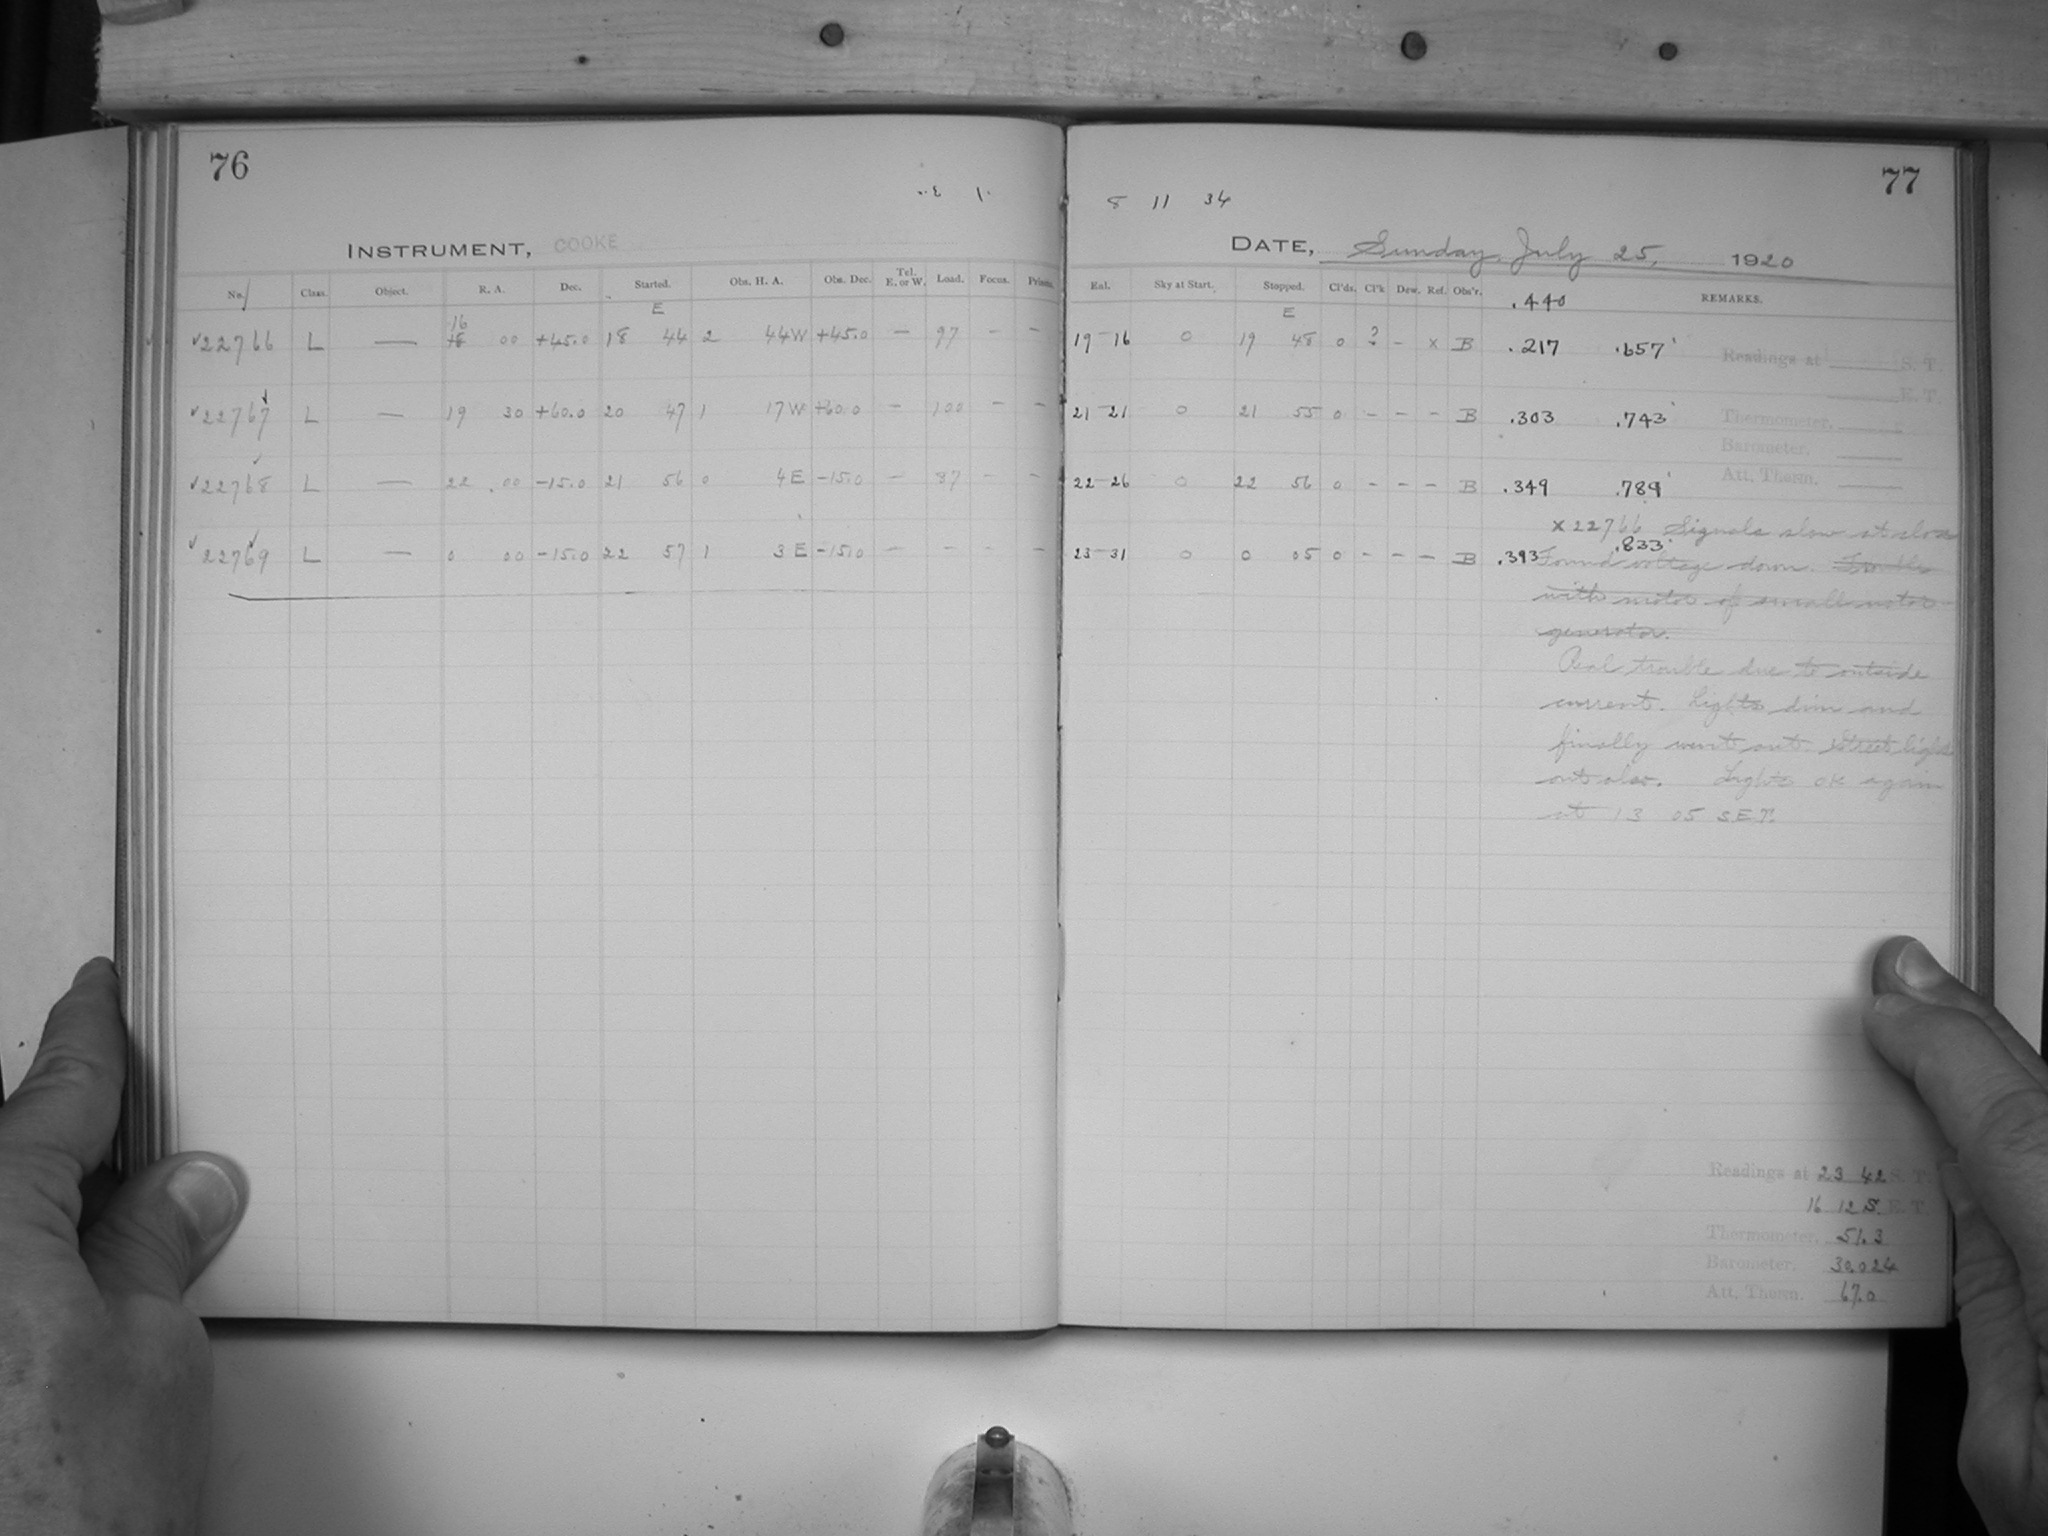 76
INSTRUMENT, COOKE
No. Class. Object. R. A. Dec. Started. Obs. H. A. Obs. Dec. Tel. E. or W. Load. Focus. Prisms.
E
16
22766 L — 18 00 +45.0 18 44 2 44W +45.0 — 97 — —
22767 L — 19 30 +60.0 20 47 1 17W +60.0 — 100 — —
22768 L — 22 00 -15.0 21 56 0 4E -15.0 — 87 — —
22769 L — 0 00 -15.0 22 57 1 3E -15.0 — — — —
77
8 11 34
DATE, Sunday, July 25, 1920
Eal. Sky at Start. Stopped. Cl'ds. Cl'k Dew. Ref. Obs'r. .440 REMARKS.
E
19-16 0 19 48 0 ? - x B .217 .657
Readings at S. T.
E. T.
21-21 0 21 55 0 - - - B .303 .743
Thermometer.
Barometer.
Att. Therm.
22-26 0 22 56 0 - - - B .349 .789
x 22766 Signals slow at close
23-31 0 0 05 0 - - - B .393 .833
Found voltage down. Trouble
with motor of small motor
generator.
Real trouble due to outside
current. Lights dim and
finally went out. Street lights
out also. Lights OK again
at 13 05 S.E.T.
Readings at 23 42 S. T.
16 12 S. E. T.
Thermometer, 51.3
Barometer. 30.024
Att. Therm. 67.0